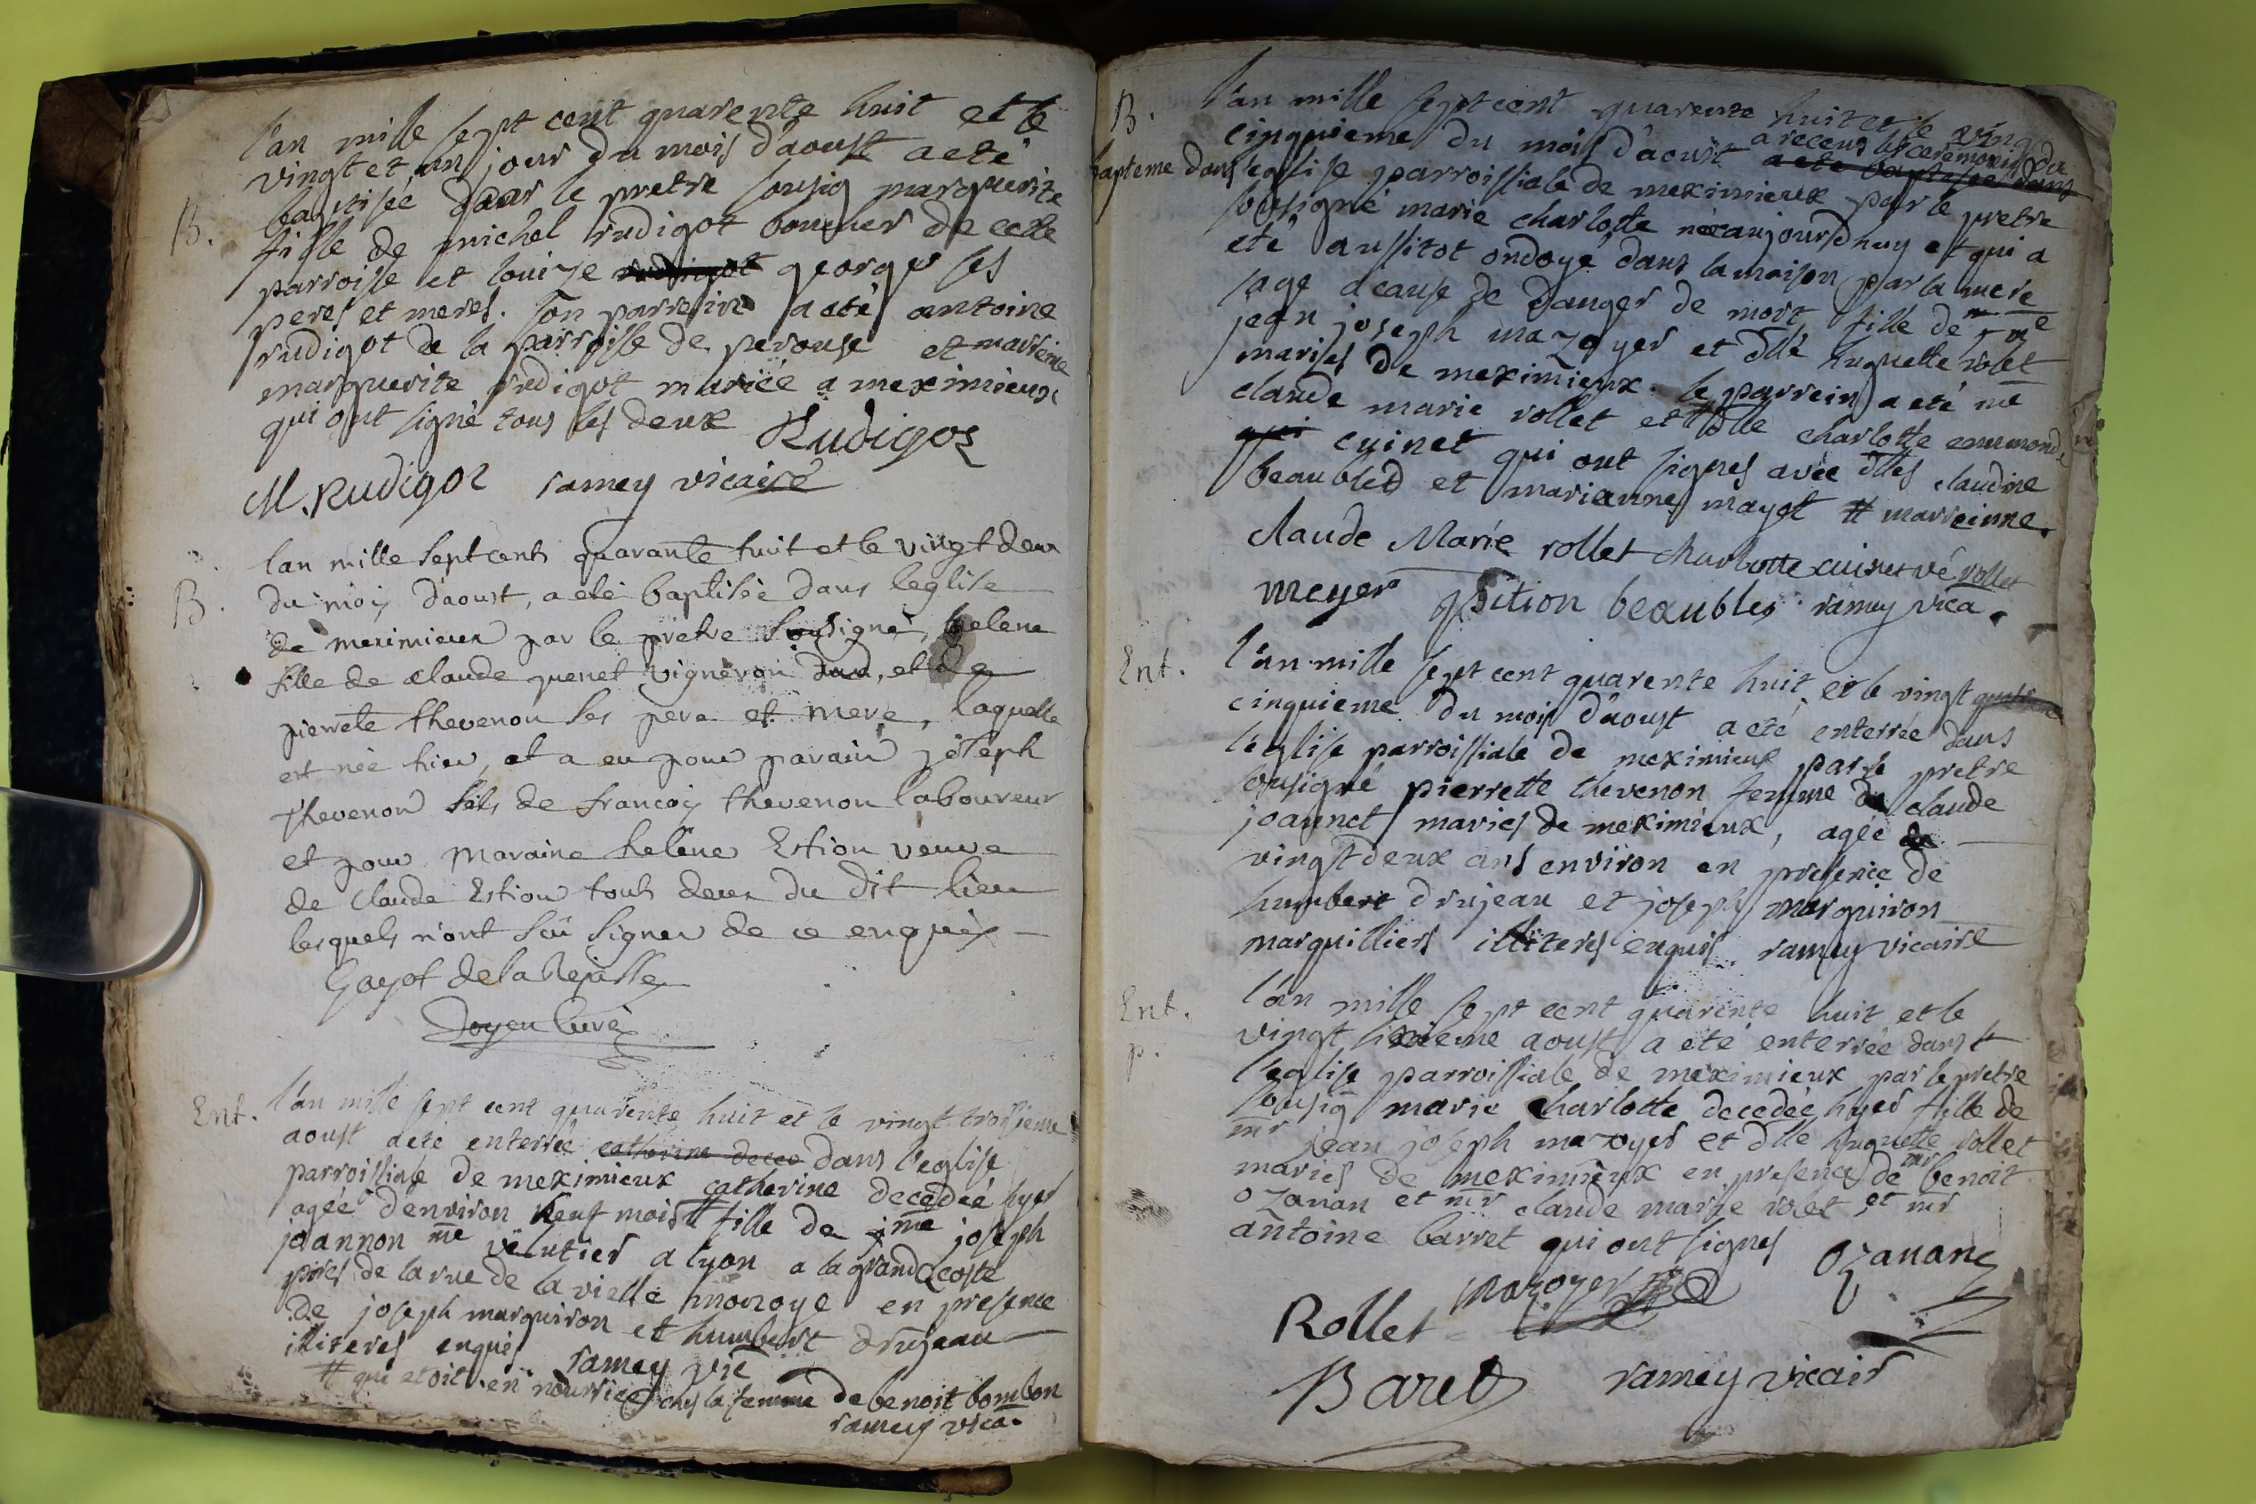 l'an mille sept cent quarente huit et le
vingt et un jour du mois d'aoust a eté
baptisée par le pretre sousig marguerite
B.
fille de michel rudigot de cette
parroisse et louize george ses
peres et meres. son parrein a eté antoine
rudigot de la parroisse de perouse et marreine
marguerite rudigot mariée a meximieux
qui ont signé tous les deux Rudigoz
M. Rudigoz ramey vicaire
lan mille sept cents quarante huit et le vingt deux
B.
du mois d'aoust, a eté baptisée dans leglise
de meximieux par le pretre sousigné, helene
fille de claude juenet vigneron et de
pierrete thevenon ses pere et mere, laquelle
est née hier, et a eu pour parain joseph
thevenon fils de francois thevenon laboureur
et pour maraine helene Estion veuve
de claude Estion touts deux du dit lieu
lesquels n'ont sçu signer de ce enquis
Gayot de la
doyen curé
Ent.
l'an mille sept cent quarente huit et le vingt troisieme
aoust a eté enterrée catherine deced dans l'eglise
parroissiale de meximieux catherine decedée hyer
agée d'environ neuf mois # fille de me joseph
joannon me veloutier a lyon a la grande coste
pres de la rue de la vielle monoye en presence
de joseph marguiron et humbert drujean
illiteres enquis ramey vic
# qui etoit en nourrice chez la femme de benoit bombon
ramey vica.
B.
l'an mille sept cent quarente huit et le vingt
a receus les ceremonies du
cinquieme du mois d'aoust a eté baptisée dans
bapteme dans l'eglise parroissiale de meximieux par le pretre
sousigné marie charlotte née aujourdhuy et qui a
eté aussitot ondoyé dans la maison par la mere
sage a cause de danger de mort fille de me
jean joseph mazoyer et dlle huguette rolet
mariés de meximieux. le parrein a eté me
claude marie rollet et dlle charlotte ennemonde
cuinet qui ont signes avec dlles claudine
beaubled et marianne mayot # marreinne.
claude Marie rollet charlotte cuinet vé rollet
meyer beaubles ramey vica.
Ent.
l'an mille sept cent quarente huit et le vingt
cinquieme du mois d'aoust a eté enterrée dans
l'eglise parroissiale de meximieux par le pretre
sousigné pierrette thevenon femme de claude
joannet mariés de meximieux, agée de
vingt deux ans environ en presence de
humbert drujean et joseph marguiron
marguilliers illiteres enquis ramey vicaire
Ent.
p.
l'an mille sept cent quarente huit et le
vingt sixieme aoust a eté enterrée dans
l'eglise parroissiale de meximieux par le pretre
sousig marie charlotte decedée hyer fille de
mr jean joseph mazoyer et dlle huguette rollet
mariés de meximieux en presence de mr benoit
ozanan et mr claude marie rolet et mr
antoine barret qui ont signes
Ozanan
Mazoyer
Rollet
Baret ramey vicair